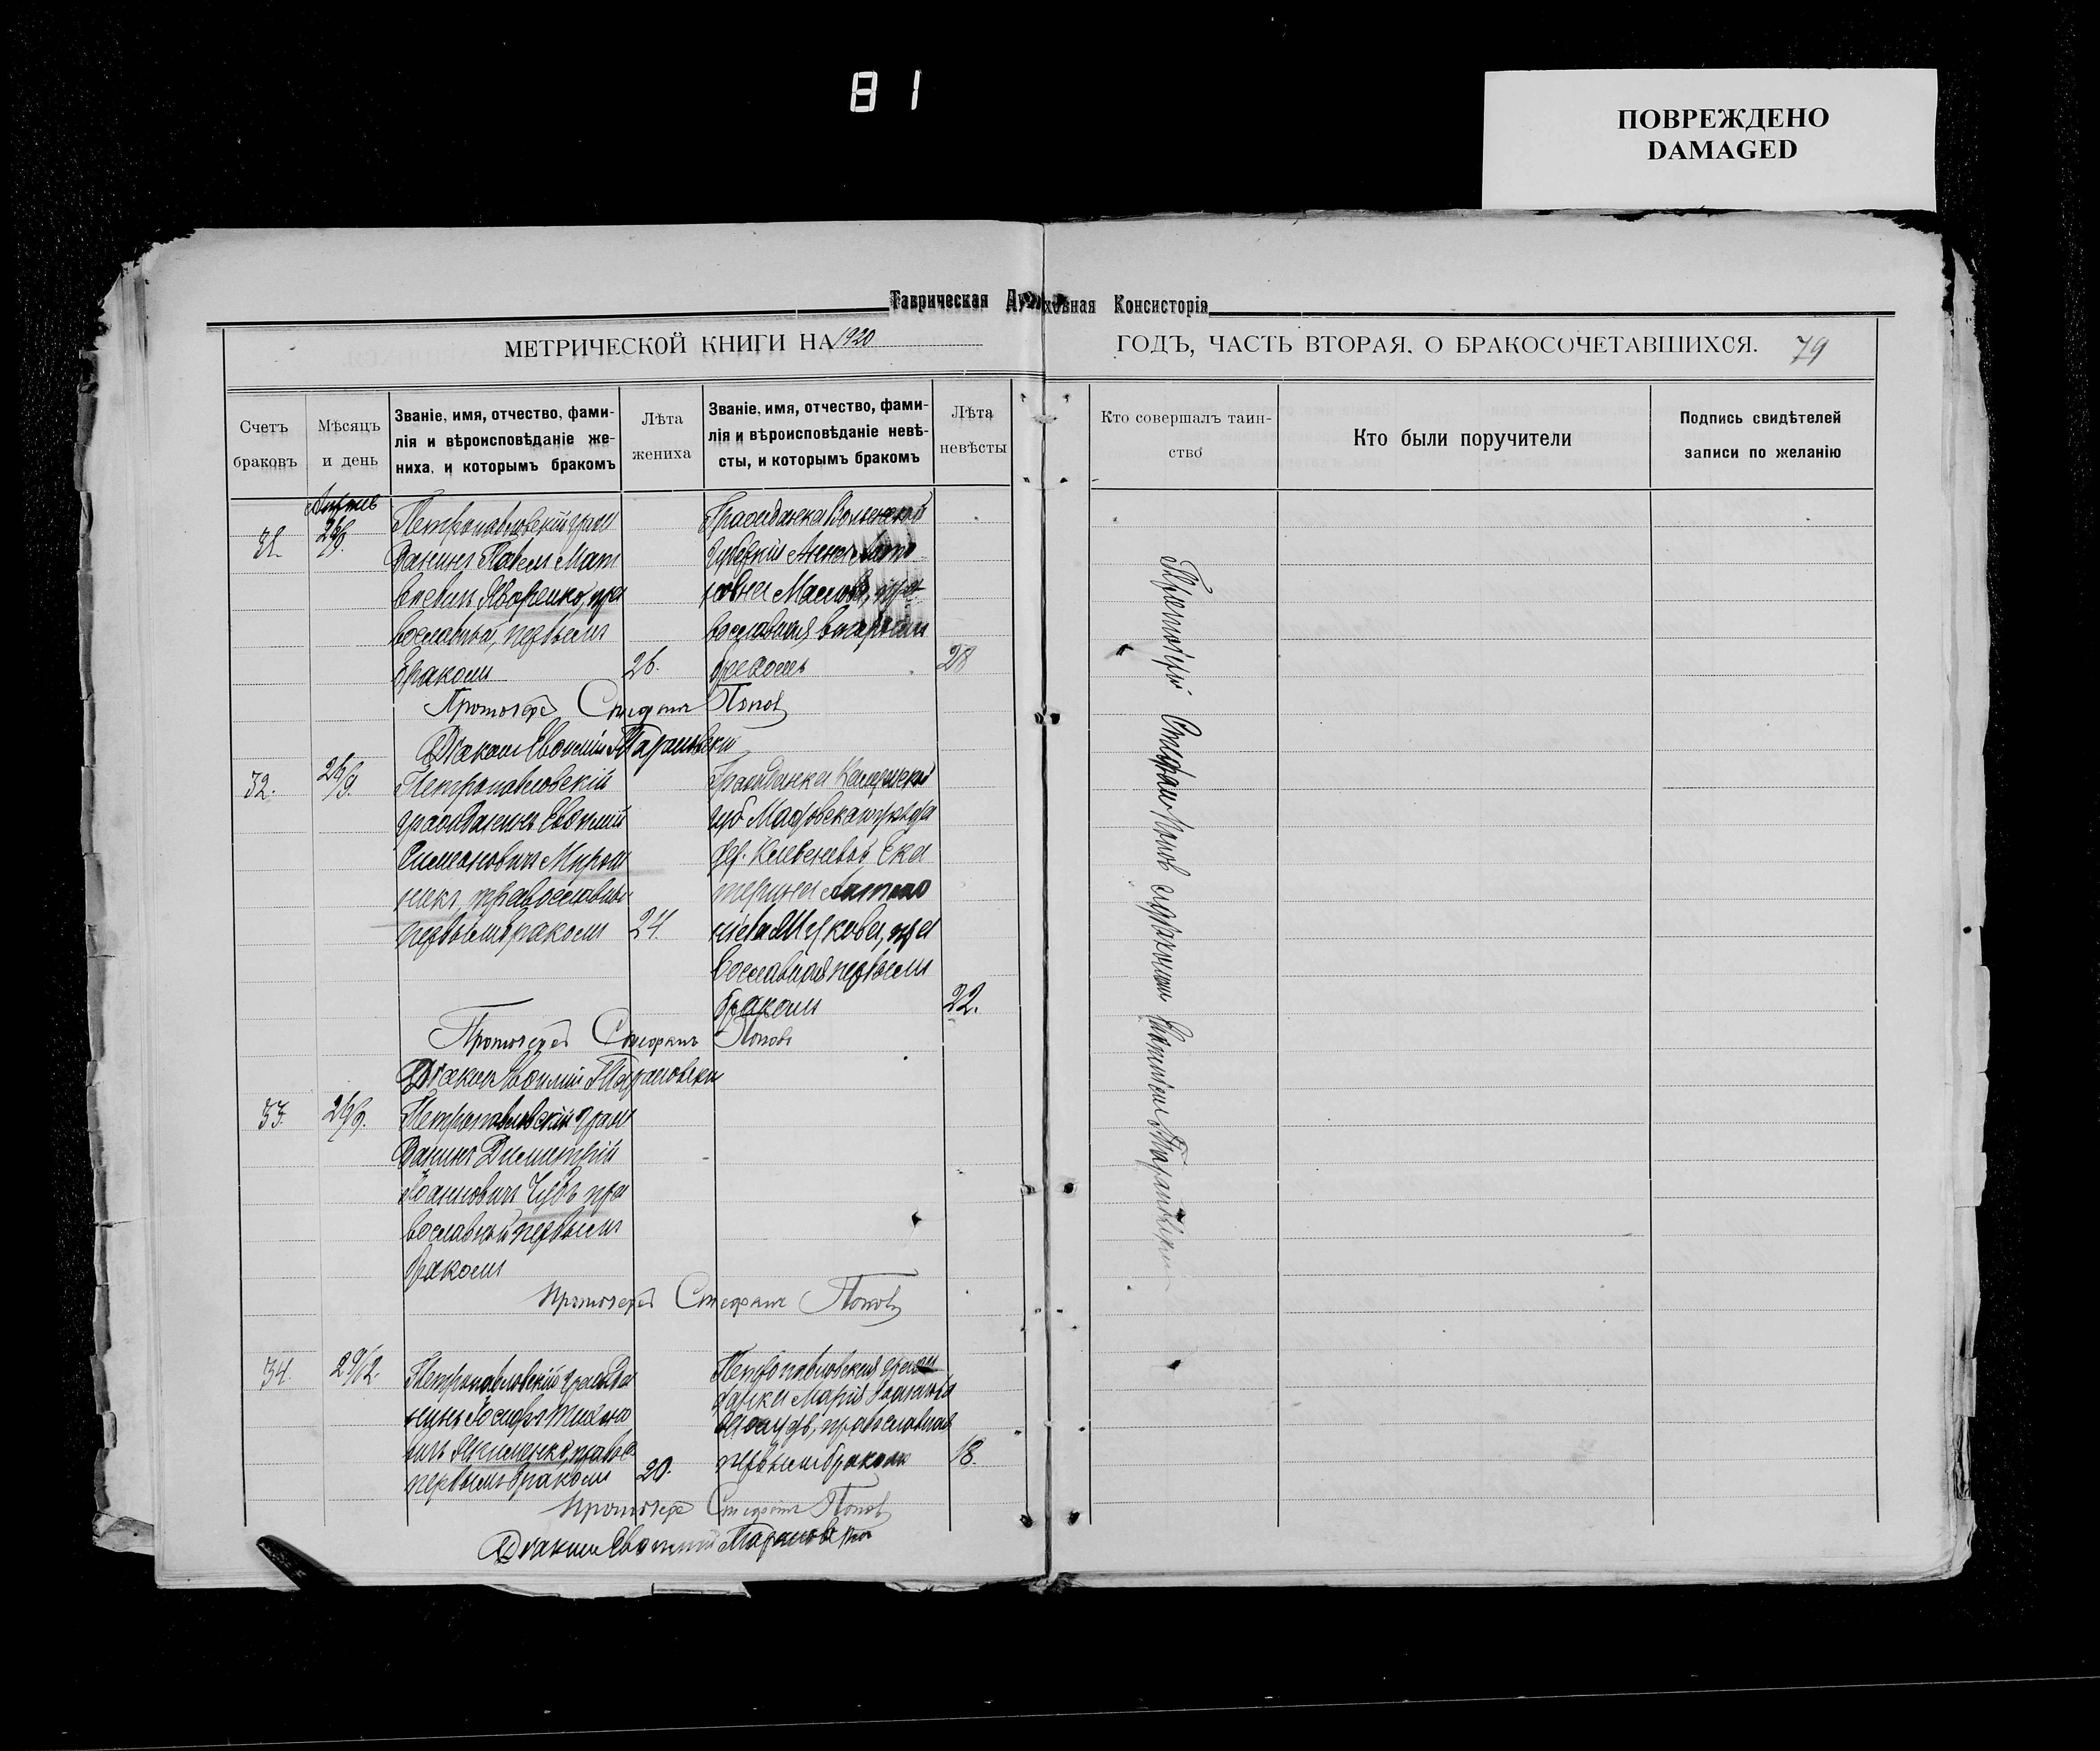 81
ПОВРЕЖДЕНО
DAMAGED
Таврическая Духовная Консисторія
МЕТРИЧЕСКОЙ КНИГИ НА 1920
ГОДЪ, ЧАСТЬ ВТОРАЯ, О БРАКОСОЧЕТАВШИХСЯ.
79
Счетъ браковъ
Мѣсяцъ и день
Званіе, имя, отчество, фами-
лія и вѣроисповѣданіе же-
ниха, и которымъ бракомъ
Лѣта жениха
Званіе, имя, отчество, фами-
лія и вѣроисповѣданіе невѣ-
сты, и которымъ бракомъ
Лѣта невѣсты
Кто совершалъ таин-
ство
Кто были поручители
Подпись свидѣтелей
записи по желанію
31.
Петропавловскій граж
данинъ Павелъ Мат
вѣевичъ Яворенко, пра
вославный, первымъ
бракомъ
26.
Гражданка Волынской
губерніи Анна
православная вторымъ
бракомъ
28
Протоіерей Стефанъ Поповъ
Діаконъ Евѳимій Тарановскій
32.
26/9.
Петропавловскій
гражданинъ Евѳимій
Симеоновичъ Мирош
никъ, православный
первымъ бракомъ
24.
Гражданка
губ
дер. Ека
терина
пра
вославная первымъ
бракомъ
22.
Протоіерей Стефанъ Поповъ
Діаконъ Евѳимій Тарановскій
33.
26/9.
Петропавловскій граж
данинъ Димитрій
Іоанновичъ Чубъ, пра
вославный первымъ
бракомъ
Протоіерей Стефанъ Поповъ
34.
29/12.
Петропавловскій гражда
нинъ Іосифъ Тихоно
вичъ Якименко, правосл
первымъ бракомъ
20.
Петропавловская граж
данка Марія
православная
первымъ бракомъ
18.
Протоіерей Стефанъ Поповъ
Діаконъ Евѳимій Тарановскій
Протоіерей Стефанъ Поповъ съ діакономъ Евѳиміемъ Тарановскимъ